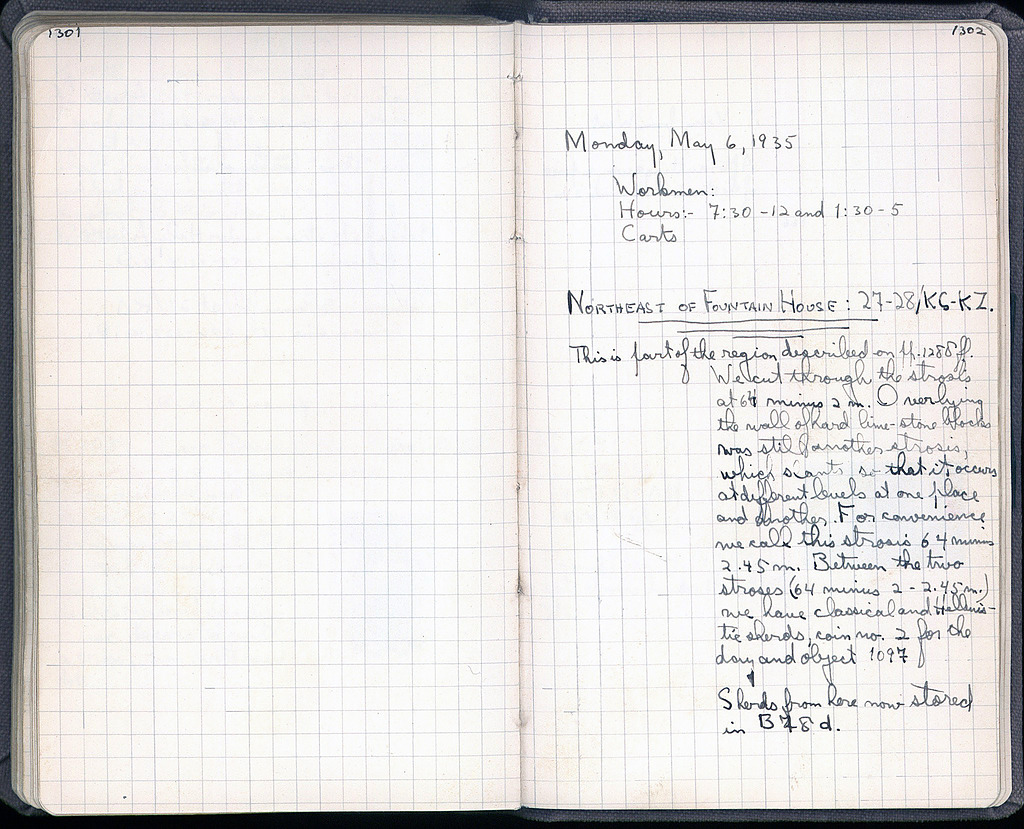 1301
1302
Monday, May 6, 1935
Workmen:
Hours:- 7:30 -12 and 1:30 - 5
Carts
NORTHEAST OF FOUNTAIN HOUSE: 27-28/KS-KZ.
This is part of the region described on pp. 1288 ff.
We cut through the strosis
at 64 minus 2 m. Overlying
the wall of hard lime-stone blocks
was still another strosis,
which slants so that it occurs
at different levels at one place
and another. For convenience
we call this strosis 64 minus
2.45 m. Between the two
stroses (64 minus 2 - 2.45 m.)
we have classical and Hellenis-
tic sherds, coin no. 2 for the
day and object 1097
Sherds from here now stored
in B 48 d.